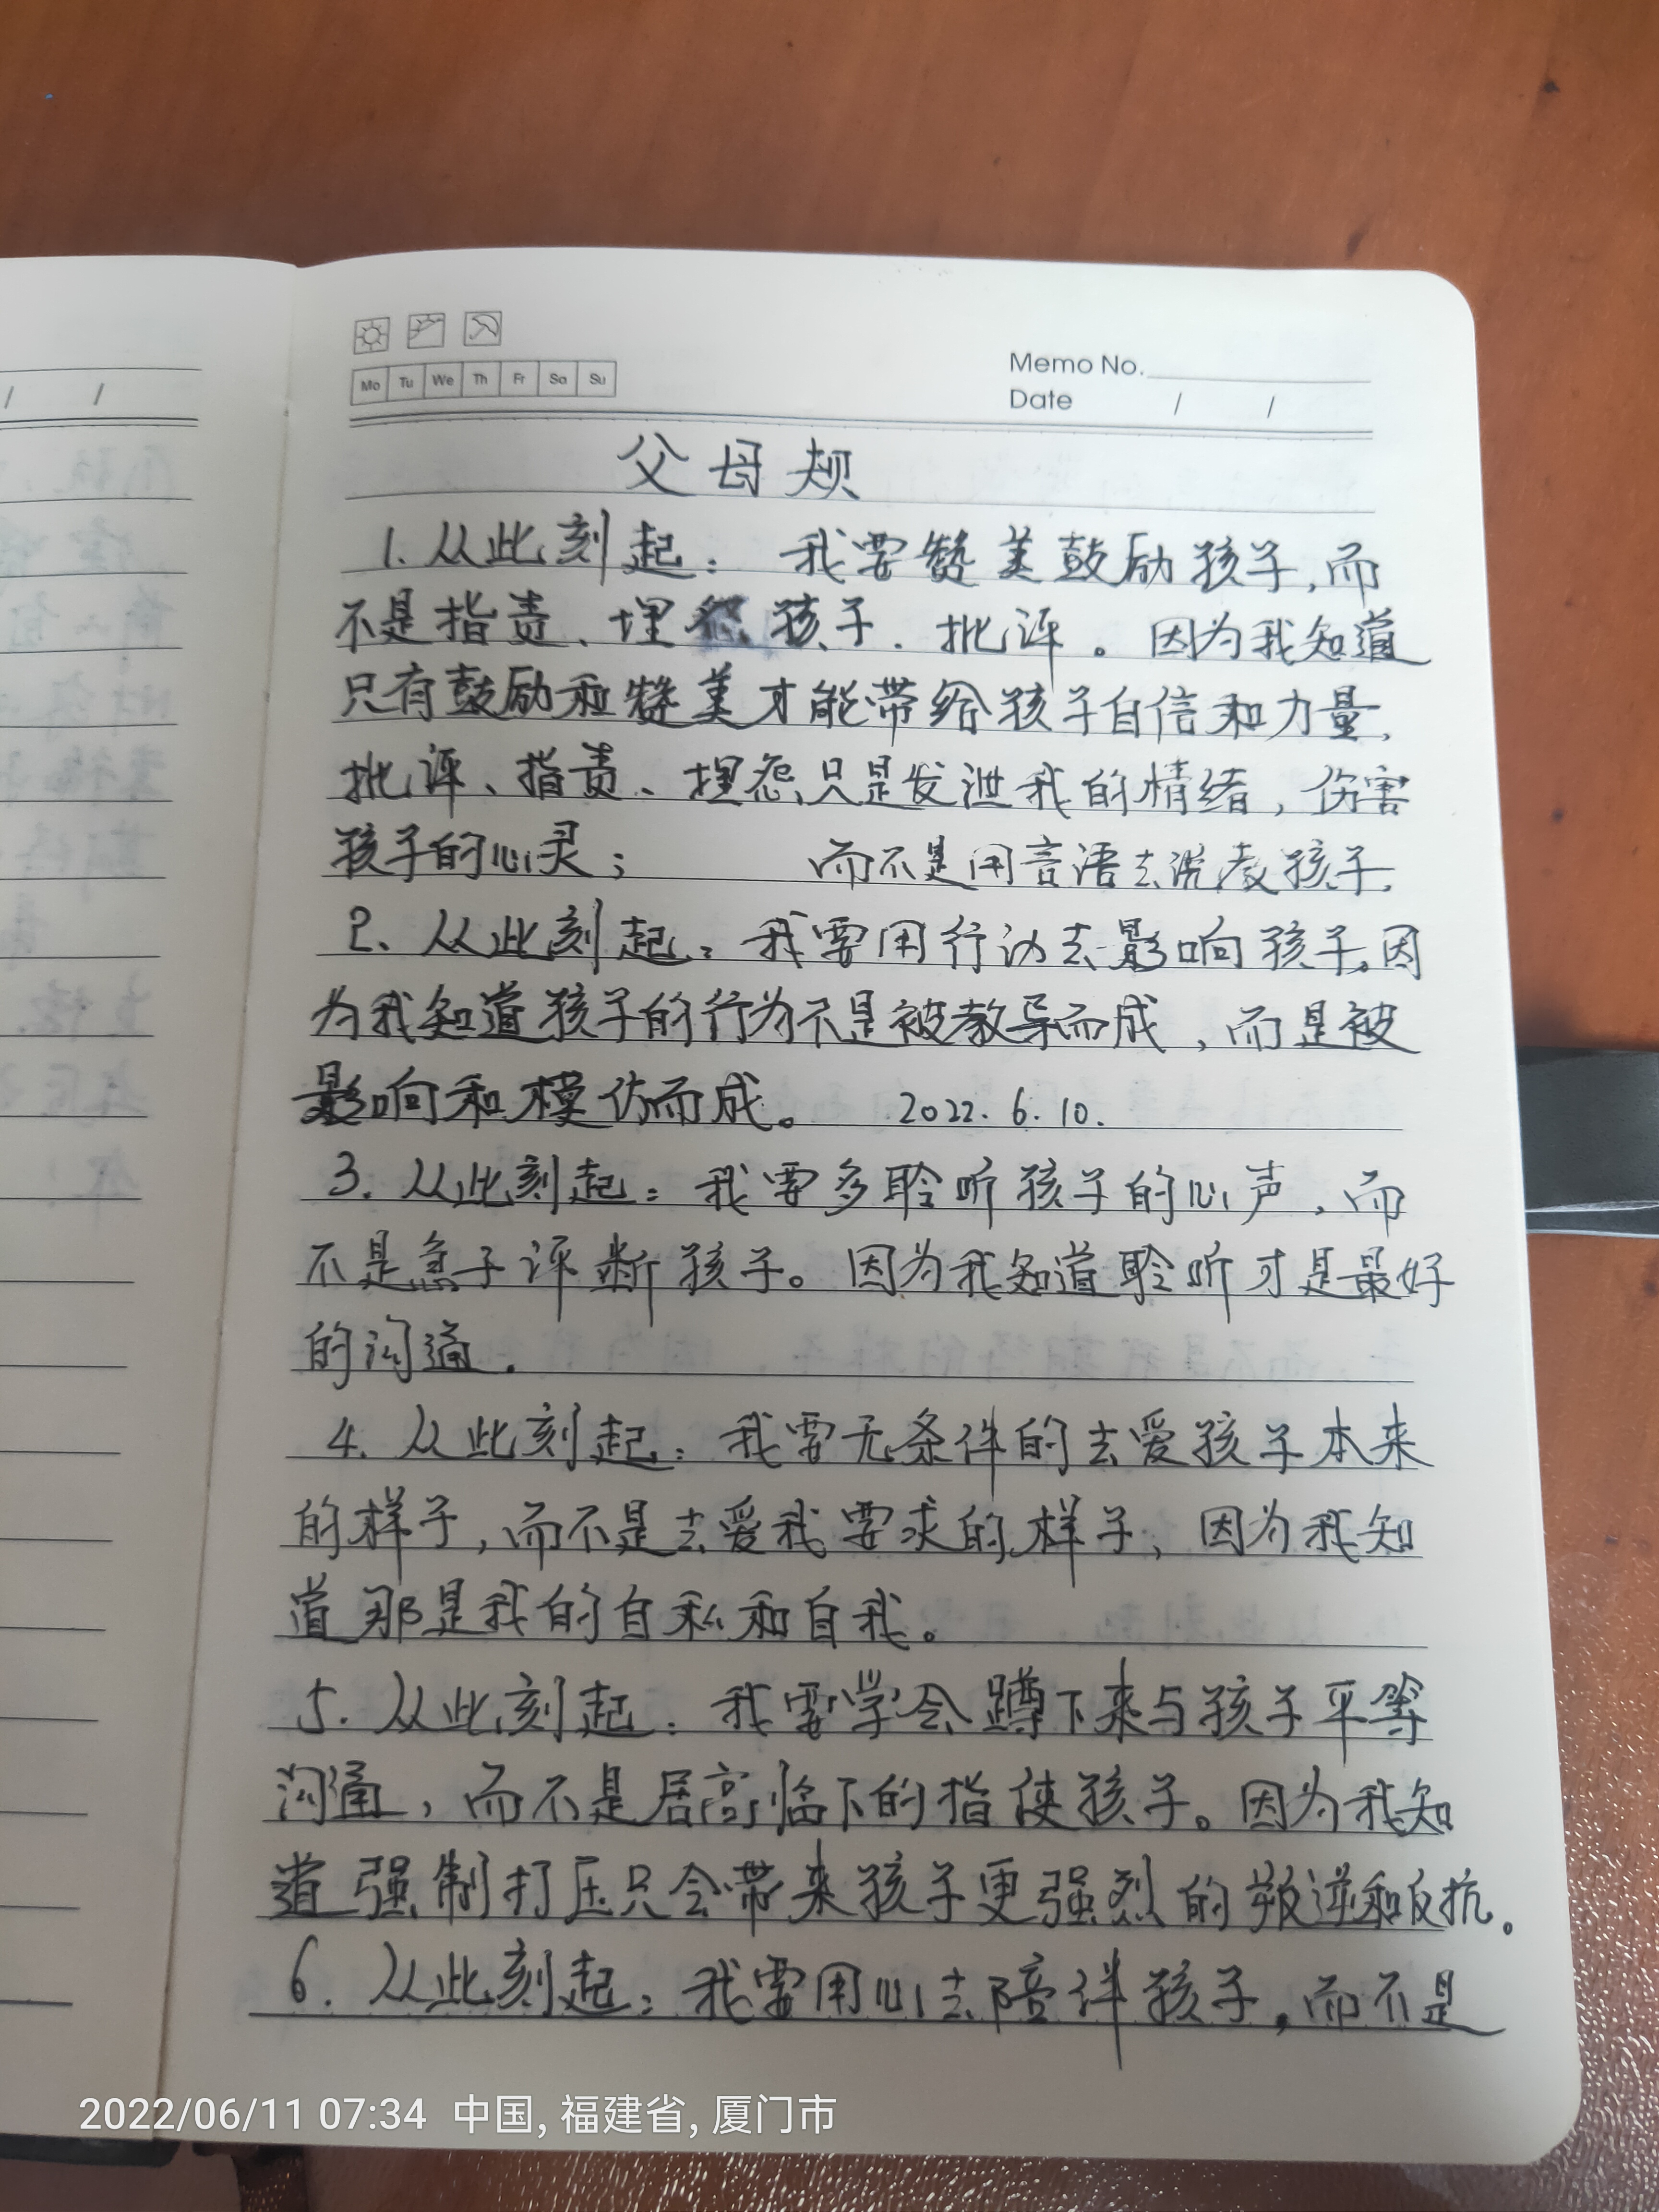 Mo Tu We Th Fr Sa Su
Memo No.
Date / /
父母规
1. 从此刻起：我要赞美鼓励孩子，而
不是指责、埋怨孩子、批评。因为我知道
只有鼓励和赞美才能带给孩子自信和力量，
批评、指责、埋怨只是发泄我的情绪，伤害
孩子的心灵；
而不是用言语去说教孩子，
2、从此刻起：我要用行动去影响孩子。因
为我知道孩子的行为不是被教导而成，而是被
影响和模仿而成。 2022.6.10.
3. 从此刻起：我要多聆听孩子的心声，而
不是急于评断孩子。因为我知道聆听才是最好
的沟通。
4. 从此刻起：我要无条件的去爱孩子本来
的样子，而不是去爱我要求的样子，因为我知
道那是我的自私和自我。
5. 从此刻起：我要学会蹲下来与孩子平等
沟通，而不是居高临下的指使孩子。因为我知
道强制打压只会带来孩子更强烈的叛逆和反抗。
6. 从此刻起：我要用心去陪伴孩子，而不是
2022/06/11 07:34 中国, 福建省, 厦门市